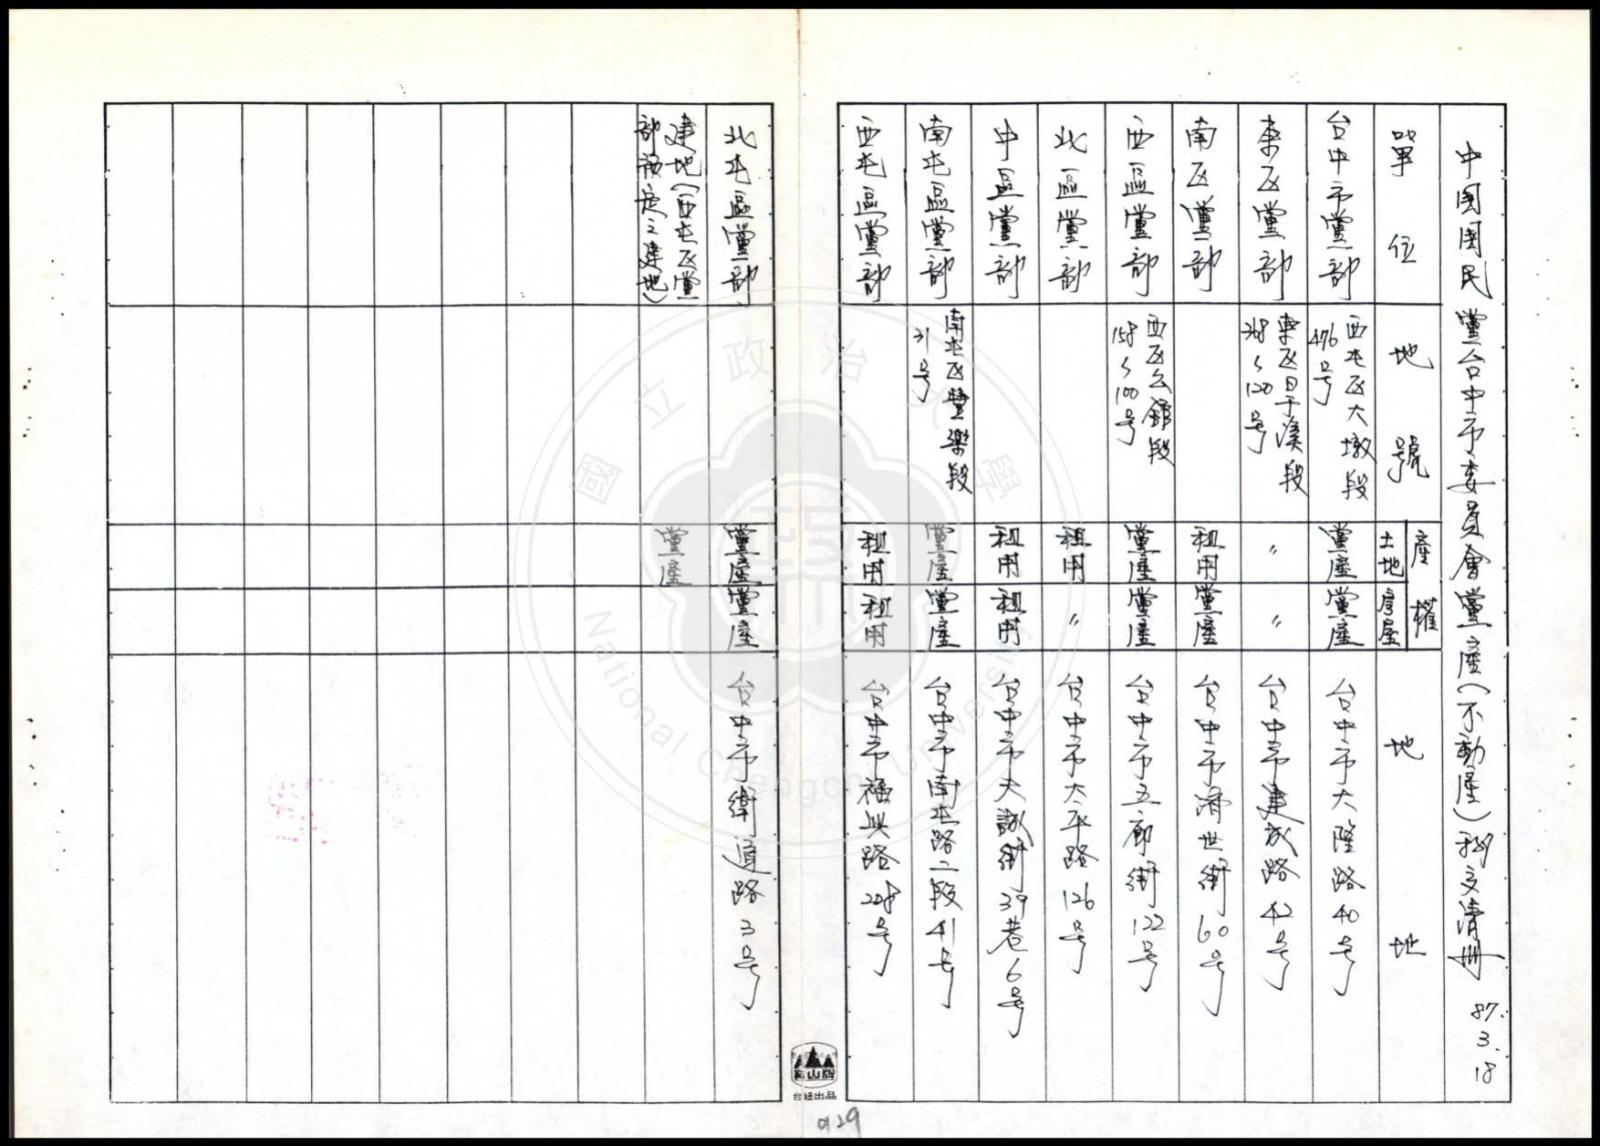 中国国民黨台中市委員會黨產(不動產)移交清册 87.3.18
單位
地號
產權
土地
房屋
地地
台中市黨部
西屯区大墩段
476号
黨產
黨產
台中市大隆路40号
東区黨部
東区旱干溪段
368~120号
〃
〃
台中市建成路42号
南区黨部
租用
黨產
台中市濟世街60号
西區黨部
西区公館段
158~100号
黨產
黨產
台中市五廊街122号
北區黨部
租用
〃
台中市太平路126号
中區黨部
租用
租用
台中市大誠街39巷6号
南屯區黨部
南屯区豐樂段
31号
黨產
黨產
台中市南屯路二段41号
西屯區黨部
租用
租用
台中市福興路228号
北屯區黨部
黨產
黨產
台中市衛道路3号
建地(西屯区黨
部預定之建地)
黨產
國立政治大學
National Chengchi University
山牌
台紙出品
029